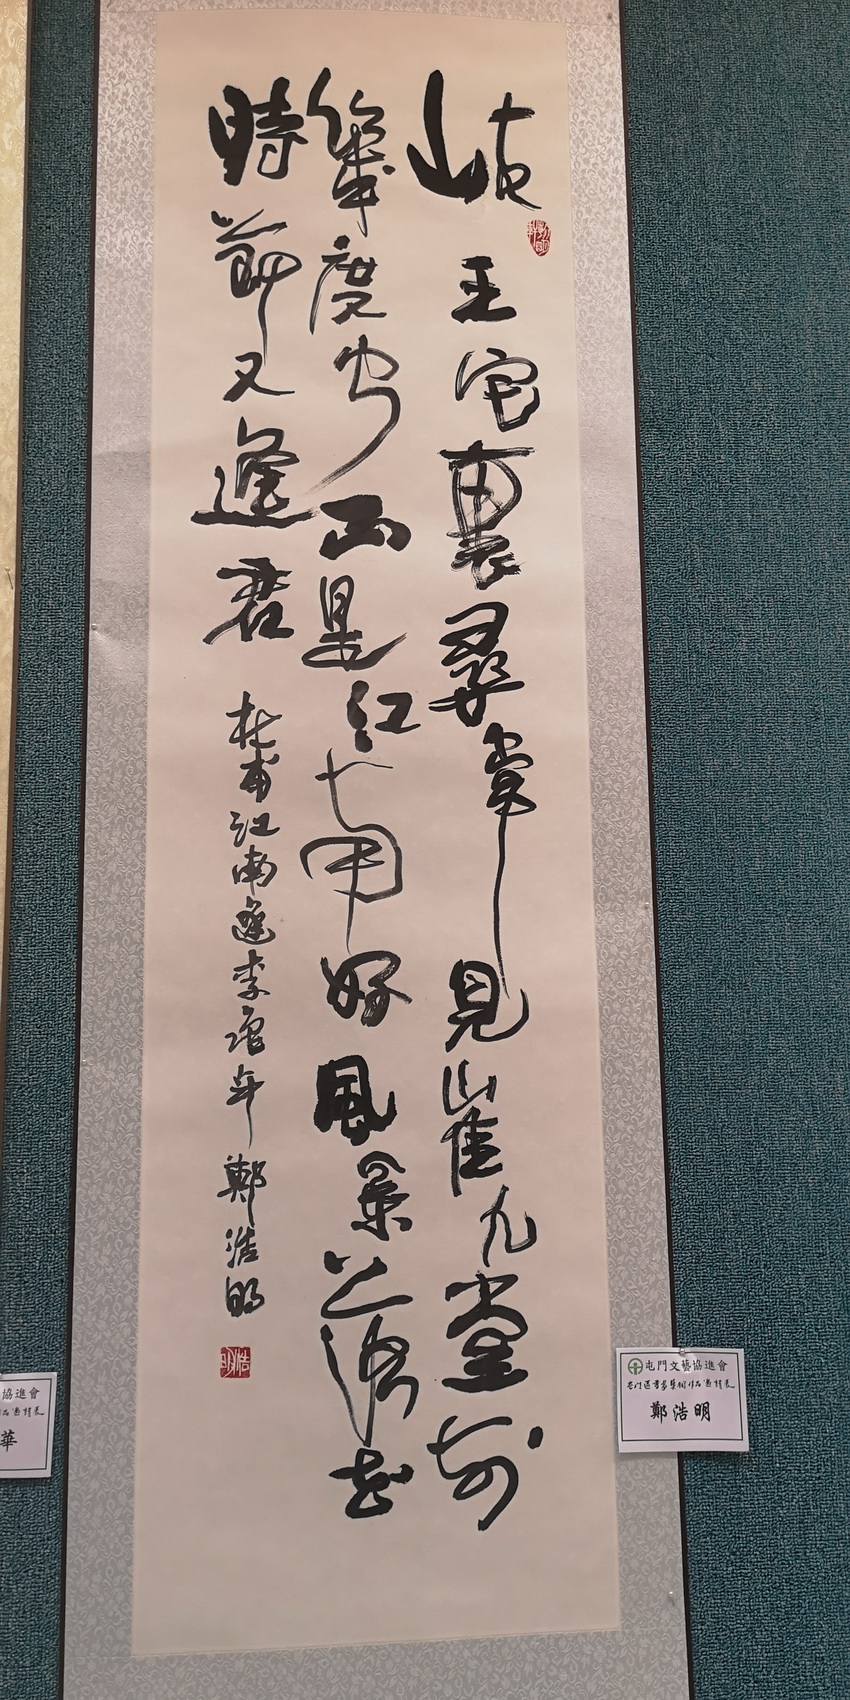 岐王宅裏尋常見崔九堂前
幾度聞正是江南好風景落花
時節又逢君
杜甫江南逢李龜年 鄭浩明
浩明
屯門文藝協進會
鄭浩明
協進會
華